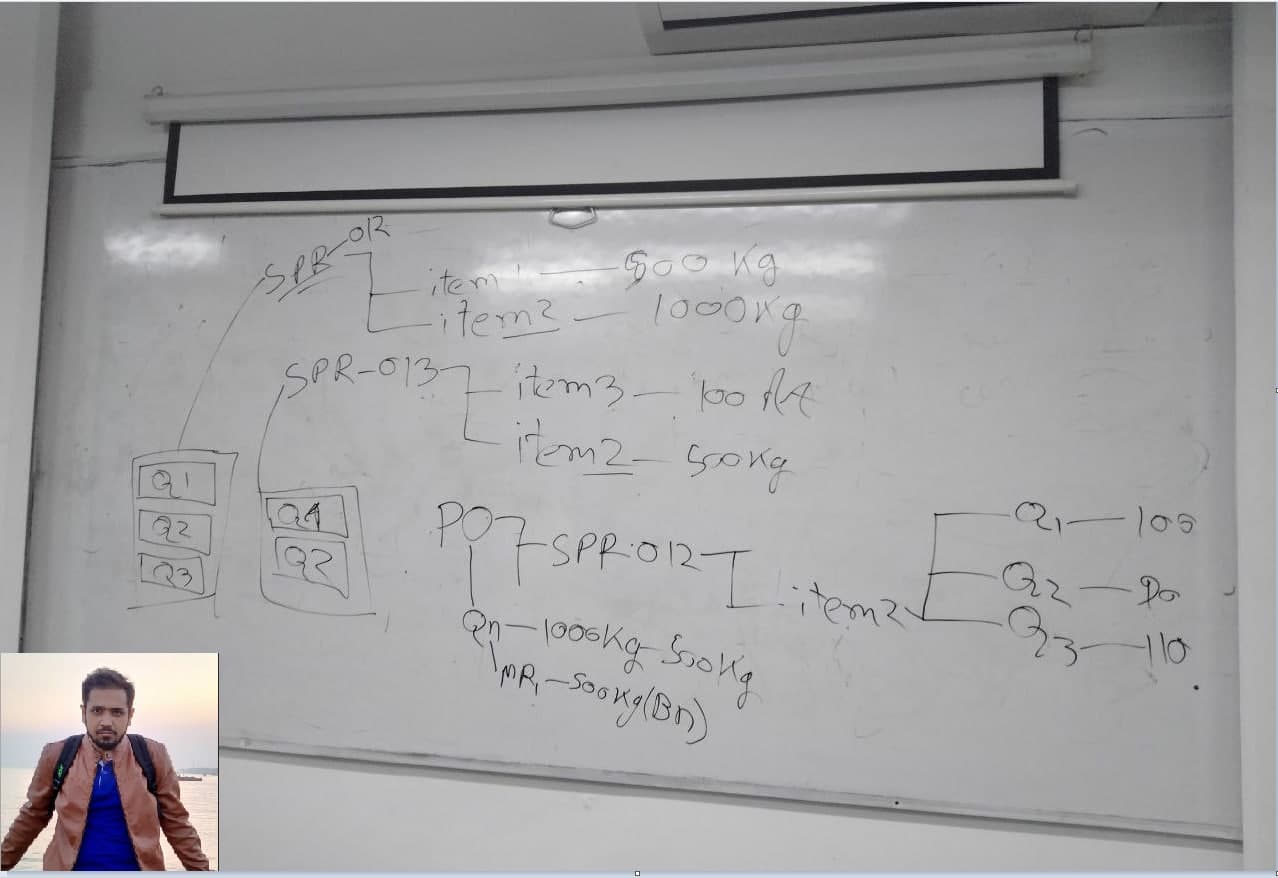 SPR-012
item 1 — 500 Kg
item2 — 1000Kg
SPR-013
item3 — 100
item2 — 500Kg
Q1
Q2
Q3
Q4
Q2
PO
SPR-012
item2
Q1 — 100
Q2 — 90
Q3 — 110
Qn — 1000Kg-500Kg
MR1 — 500Kg(Bn)